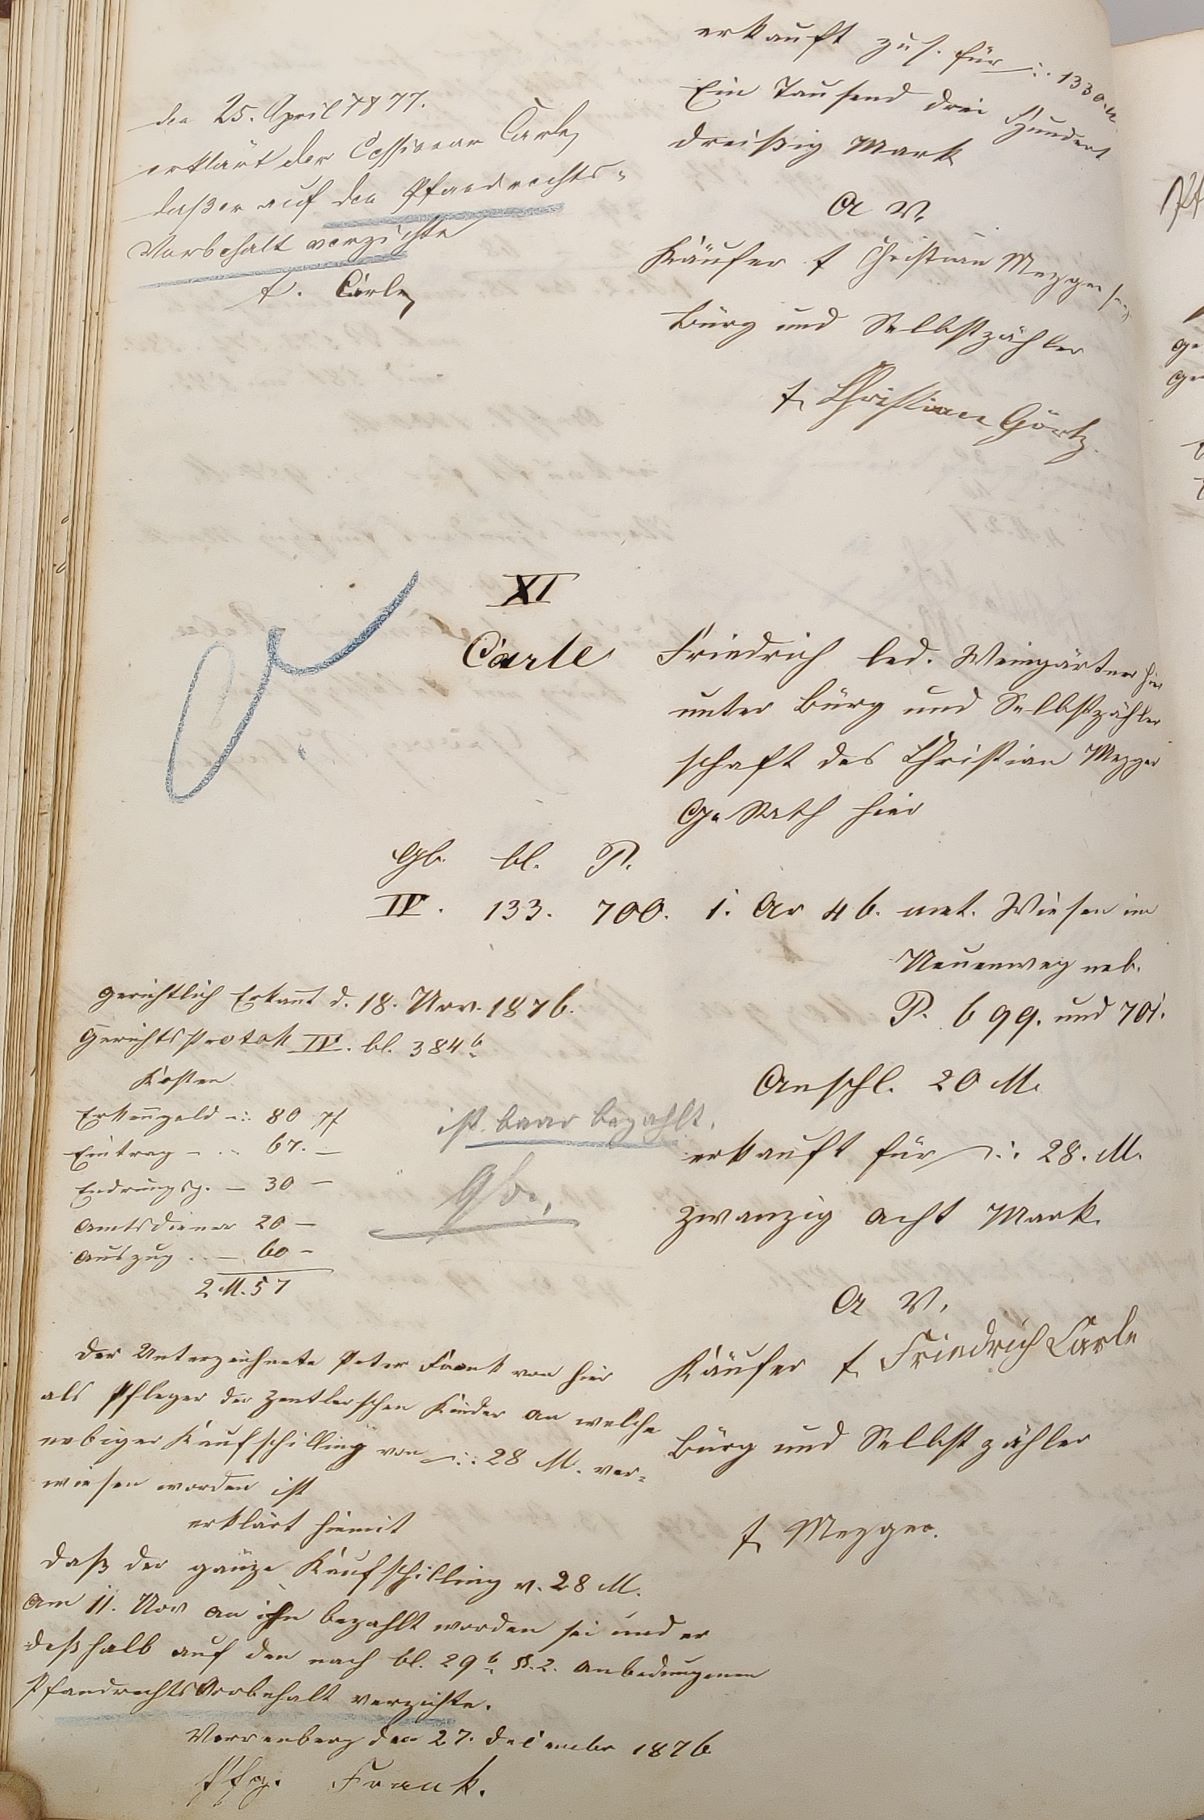 den 25. April 1877.
erklärt der Cessionar Carle,
daß er auf den Pfandrechts-
Vorbehalt verzichte
t. Carle,
erkauft zus. für 1330. M.
Ein Tausend drei Hundert
dreißig Mark
A V.
Käufer t Christian Mezger
Bürg und Selbstzahler
t. Christian Görtz.
XI
Carle
Friedrich led. Weingärtner hier
unter Bürg und Selbstzahler
schaft des Christian Mezger
Ge. Rath hier
Gb. bl. P.
IV. 133. 700. 1. Ar 46. met. Wiesen im
Neuenweg neb.
P. 699. und 701.
Anschl. 20 M.
erkauft für 28. M.
zwanzig acht Mark.
A V.
Käufer t. Friedrich Carle
Bürg und Selbstzahler
t. Mezger.
gerichtlich Erkannt d. 18. Nov. 1876.
Gerichts Protok IV. bl. 384 b
Kosten
Erkenngeld 80 Pf
Eintrag 67. —
30 —
Amtsdiener 20 —
Auszug 60 —
2 M. 57
ist baar bezahlt.
Gb.
Der Unterzeichnete Peter Frank von hier
als Pfleger der Zentlerschen Kinder an welche
nebiger Kaufschilling von 28 M. ver-
wiesen worden ist
erklärt hiemit
daß der ganze Kaufschilling v. 28 M.
am 11. Nov an ihn bezahlt worden sei und er
deßhalb auf den nach bl. 29 b §. 2. anbedungenen
Pfandrechts Vorbehalt verzichte.
Verrenberg den 27. December 1876
Pfg. Frank.